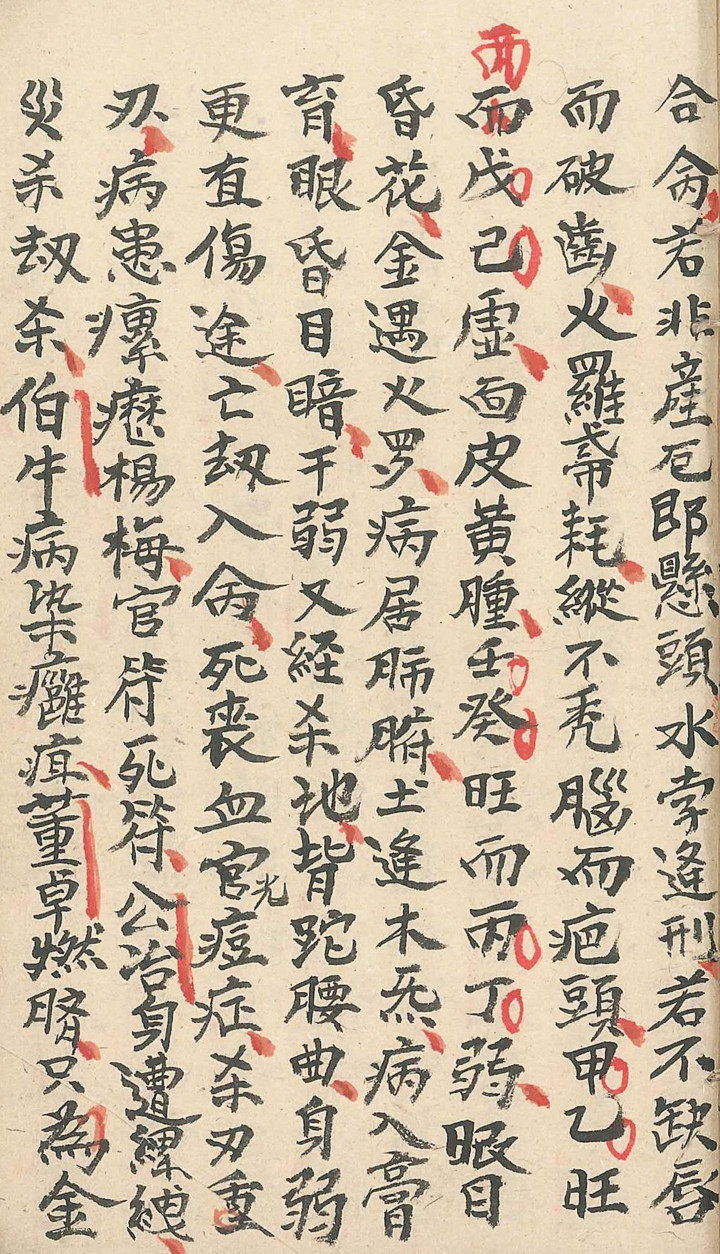 合侖若非產厄即懸頭水孛逢刑若不缺唇
而破齒火羅帝耗縱不禿腦而疤頭甲乙旺
而戊己虛面皮黃腫壬癸旺而丙丁弱眼目
西
昏花金遇火罗病居肺腑土逢木炁病入膏
育眼昏目暗干弱又経杀地背跎腰曲身弱
更直傷途亡刼入侖死喪血官光痘症杀刃重
刃病患瘰癧楊梅官符死符公冶身遭縲絏
災杀刼杀伯牛病染癰疽董卓燃臍只為金